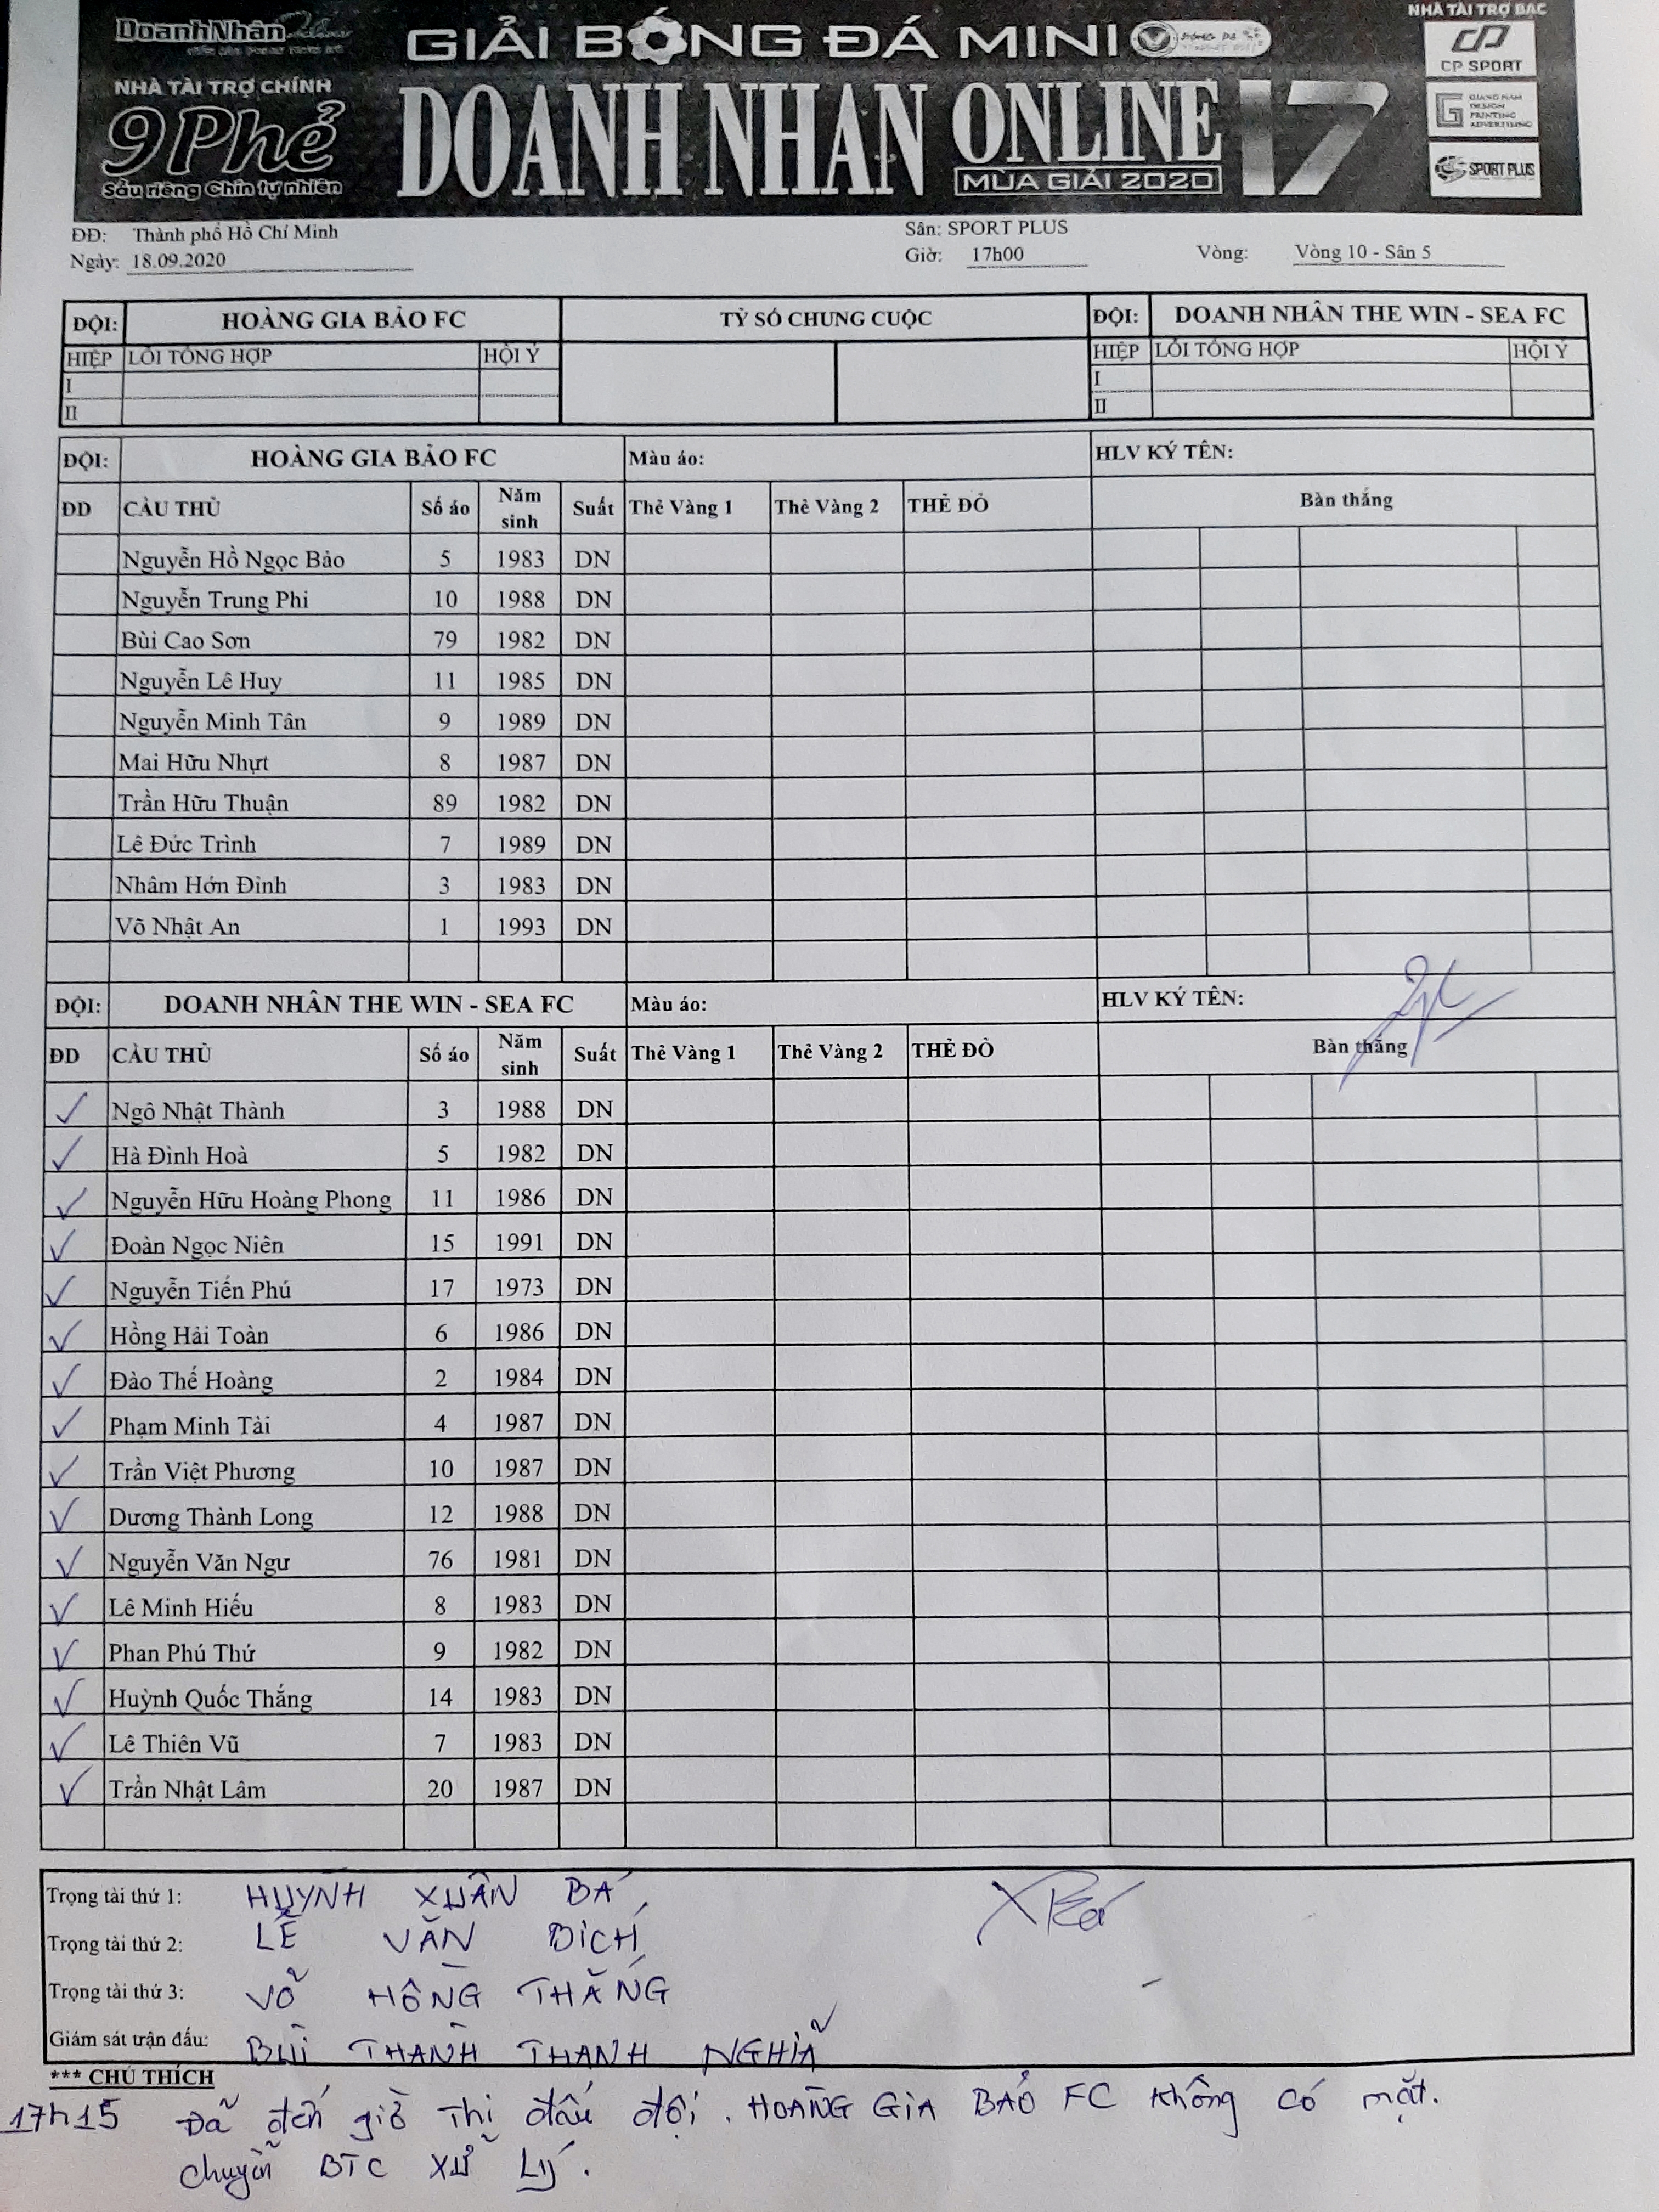 DoanhNhân
NHÀ TÀI TRỢ CHÍNH
9 Phẻ
Sầu riêng Chín tự nhiên
GIẢI BÓNG ĐÁ MINI
DOANH NHÂN ONLINE 17
MÙA GIẢI 2020
NHÀ TÀI TRỢ BẠC
CP SPORT
GIANG NAM
DESIGN
PRINTING
ADVERTISING
SPORT PLUS
ĐĐ: Thành phố Hồ Chí Minh Sân: SPORT PLUS
Ngày: 18.09.2020 Giờ: 17h00 Vòng: Vòng 10 - Sân 5
ĐỘI: HOÀNG GIA BẢO FC TỶ SỐ CHUNG CUỘC ĐỘI: DOANH NHÂN THE WIN - SEA FC
HIỆP LỖI TỔNG HỢP HỘI Ý HIỆP LỖI TỔNG HỢP HỘI Ý
I I
II II
ĐỘI: HOÀNG GIA BẢO FC Màu áo: HLV KÝ TÊN:
ĐD CẦU THỦ Số áo Năm sinh Suất Thẻ Vàng 1 Thẻ Vàng 2 THẺ ĐỎ Bàn thắng
Nguyễn Hồ Ngọc Bảo 5 1983 DN
Nguyễn Trung Phi 10 1988 DN
Bùi Cao Sơn 79 1982 DN
Nguyễn Lê Huy 11 1985 DN
Nguyễn Minh Tân 9 1989 DN
Mai Hữu Nhựt 8 1987 DN
Trần Hữu Thuận 89 1982 DN
Lê Đức Trình 7 1989 DN
Nhâm Hớn Đình 3 1983 DN
Võ Nhật An 1 1993 DN
ĐỘI: DOANH NHÂN THE WIN - SEA FC Màu áo: HLV KÝ TÊN:
ĐD CẦU THỦ Số áo Năm sinh Suất Thẻ Vàng 1 Thẻ Vàng 2 THẺ ĐỎ Bàn thắng
✓ Ngô Nhật Thành 3 1988 DN
✓ Hà Đình Hoà 5 1982 DN
✓ Nguyễn Hữu Hoàng Phong 11 1986 DN
✓ Đoàn Ngọc Niên 15 1991 DN
✓ Nguyễn Tiến Phú 17 1973 DN
✓ Hồng Hải Toàn 6 1986 DN
✓ Đào Thế Hoàng 2 1984 DN
✓ Phạm Minh Tài 4 1987 DN
✓ Trần Việt Phương 10 1987 DN
✓ Dương Thành Long 12 1988 DN
✓ Nguyễn Văn Ngư 76 1981 DN
✓ Lê Minh Hiếu 8 1983 DN
✓ Phan Phú Thứ 9 1982 DN
✓ Huỳnh Quốc Thắng 14 1983 DN
✓ Lê Thiên Vũ 7 1983 DN
✓ Trần Nhật Lâm 20 1987 DN
Trọng tài thứ 1: HUỲNH XUÂN BÁ
Trọng tài thứ 2: LÊ VĂN BÍCH
Trọng tài thứ 3: VÕ HỒNG THẮNG
Giám sát trận đấu: BÙI THANH THANH NGHĨA
*** CHÚ THÍCH
17h15 Đã đến giờ thi đấu đội. HOÀNG GIA BẢO FC không có mặt.
chuyển BTC XỬ LÝ.